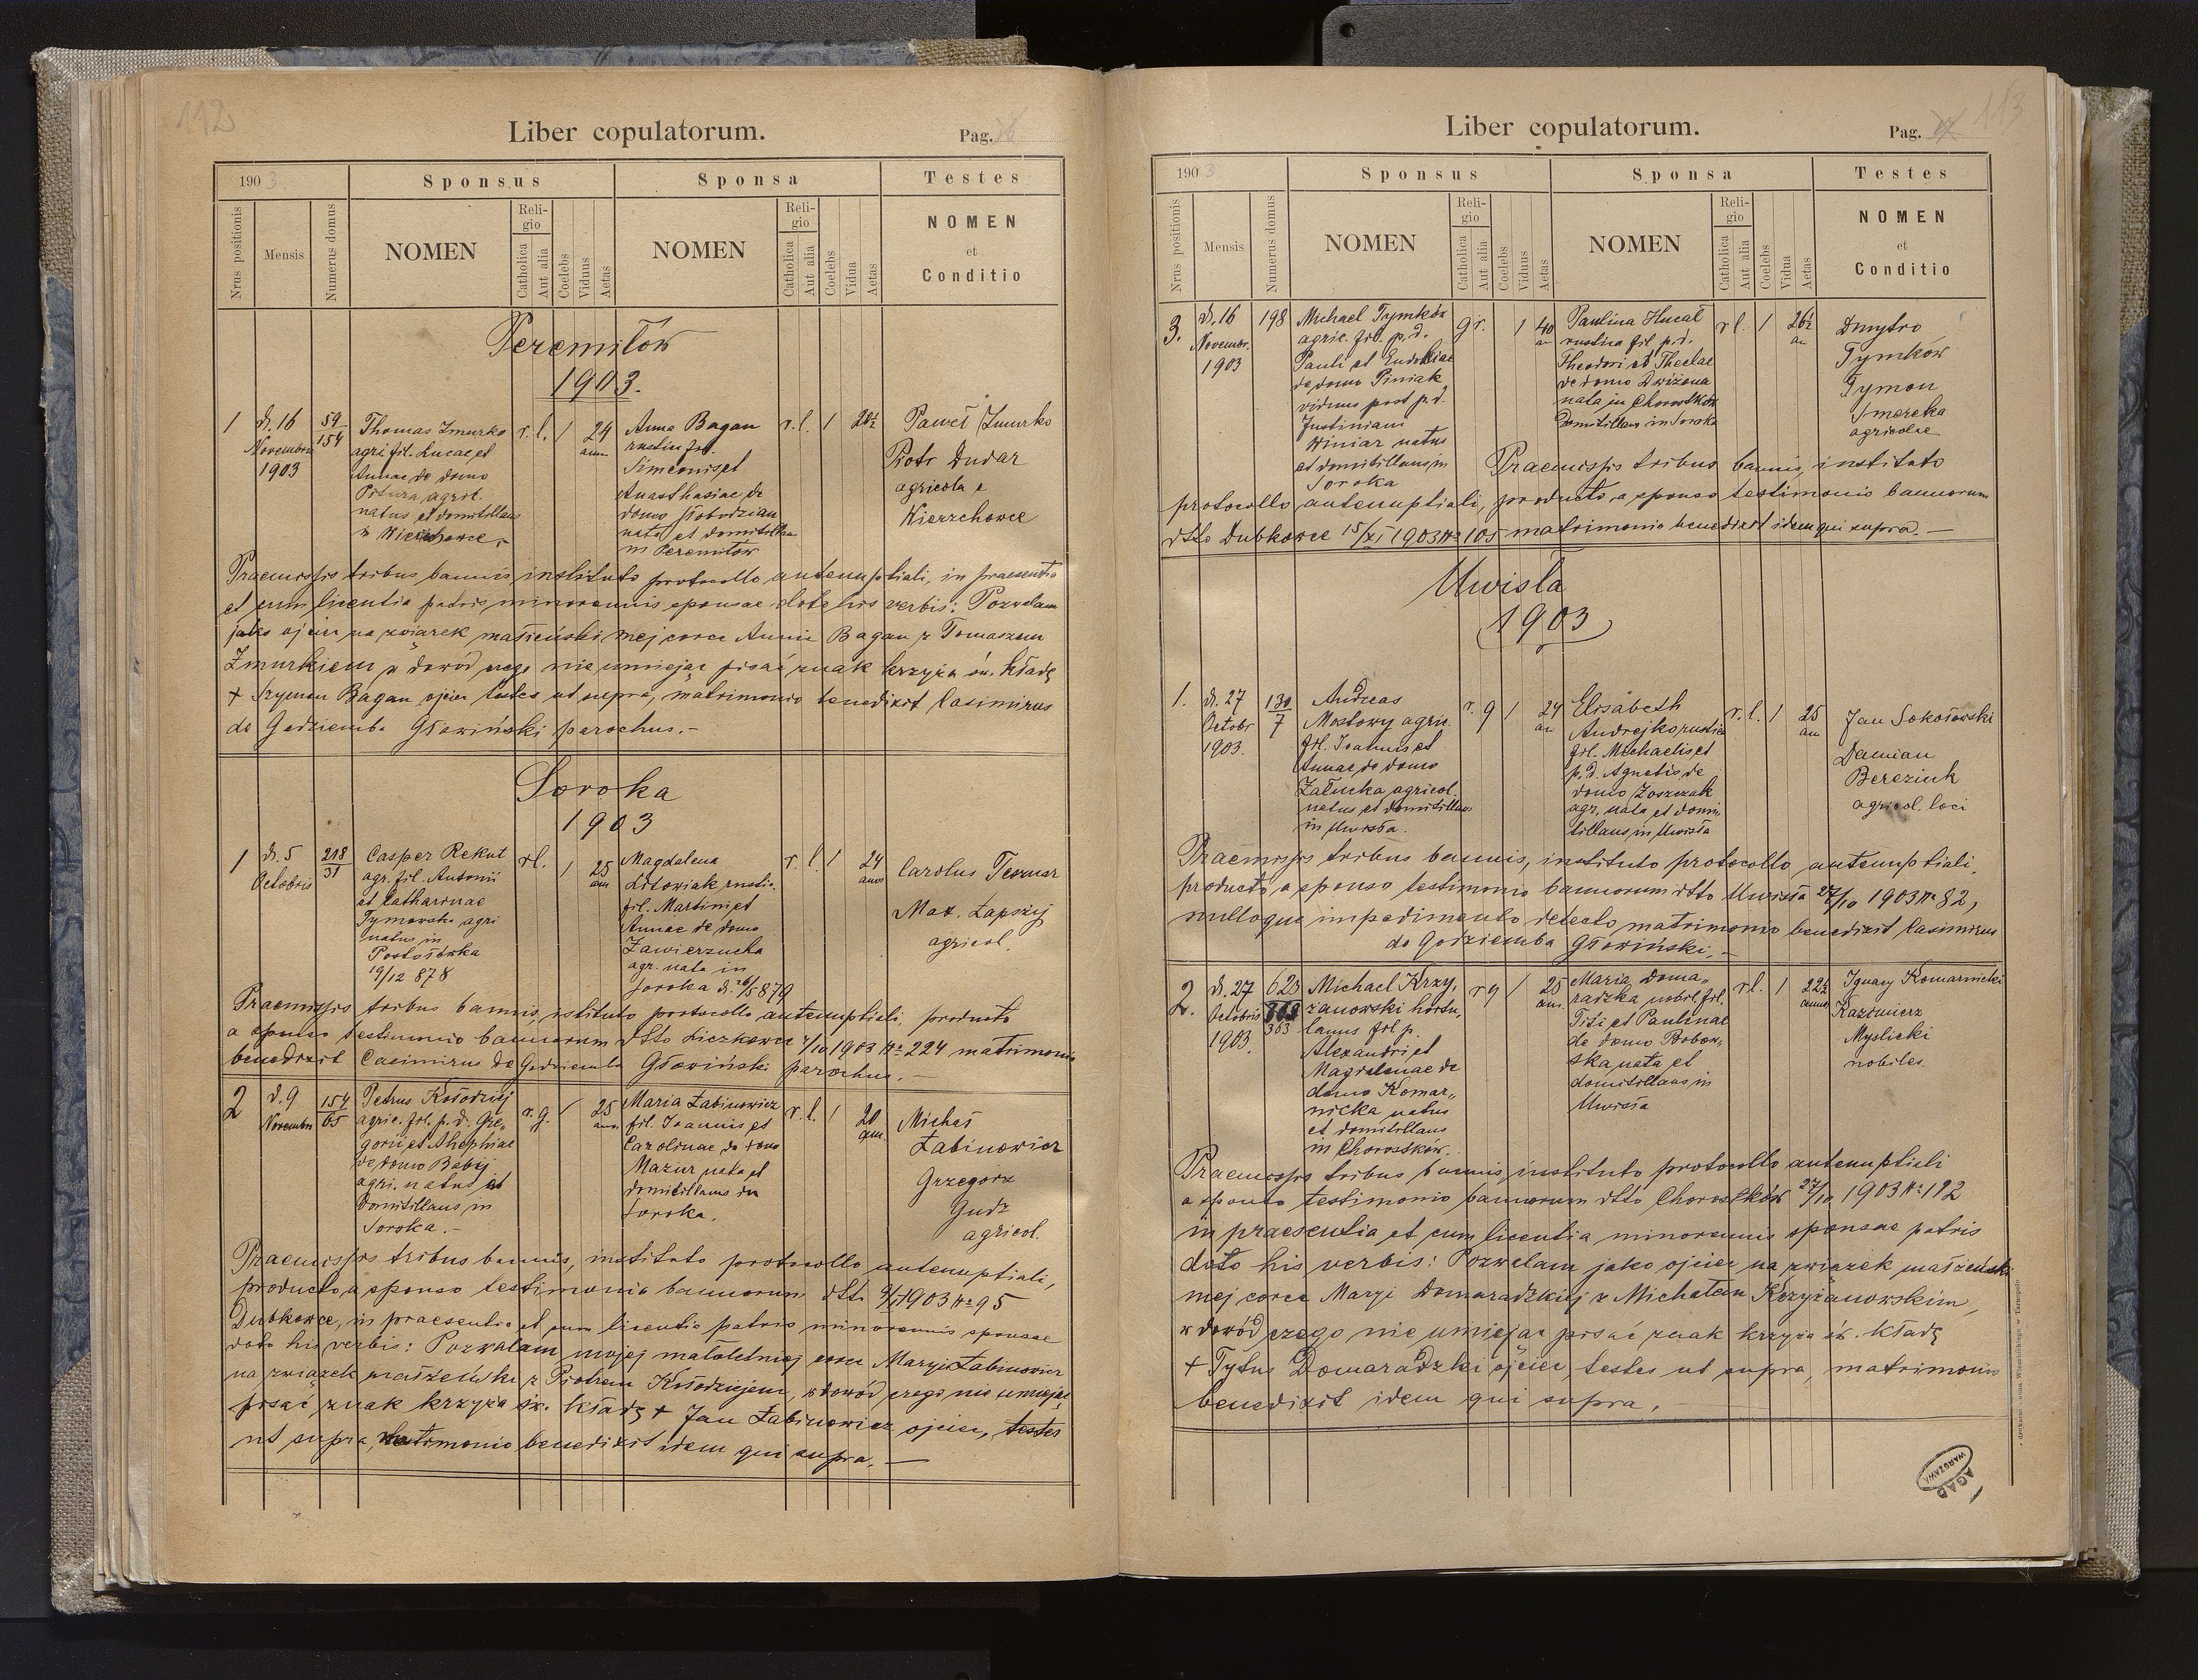 112
Liber copulatorum.
Pag.
1903
Sponsus
Sponsa
Testes
Nrus positionis
Mensis
Numerus domus
NOMEN
Religio
Catholica
Aut alia
Coelebs
Viduus
Aetas
NOMEN
Religio
Catholica
Aut alia
Coelebs
Vidua
Aetas
NOMEN
et
Conditio
Peremilów
1903.
1
d. 16
Novembris
1903
59
154
Thomas Zmurko
agri. fil. Lucae et
Annae de domo
agric.
natus et domitillans
r. l.
1
24
ann
Anna Bagan
rustica fil.
Simeonis et
Anasthasiae de
domo Słobodzian
nata et domitillans
in Peremilów
r. l.
1
20½
Paweł Zmurko
Piotr Dudar
agricola e
Wierzchowce
Praemissis tribus bannis, instituto protocollo antenuptiali, in praesentia
et cum licentia patris minorennis sponsae dote his verbis: Pozwalam
jako ojciec na związek małżeński mej corce Annie Bagan z Tomaszem
Zmurkiem w dowód czego nie umiejąc pisać znak krzyża św. kładę
+ Szymon Bagan ojciec testes ut supra, matrimonio benedixit Casimirus
de Godziemba Głowiński parochus.-
Soroka
1903
1
d. 5
Octobris
218
31
Casper Rekut
agr. fil. Antonii
et Catharinae
Tymowska agri
natus in
Postołówka
19/12 878
rl.
1
25
ann
Magdalena
Litowiak rustic.
fil. Martini et
Annae de domo
Zawierzucha
agr. nata in
Soroka d. 26/5 879
r. l.
1
24
anos
Carolus
Mat. Łapszyj
agricol.
Praemissis tribus bannis, instituto protocollo antenuptiali, producto
a sponso testimonio bannorum dtto Liczkowce 4/10 1903 Nr 224 matrimonio
benedixit Casimirus de Godziemba Głowiński parochus.-
2
d. 9
Novembri
154
65
Petrus Kołodziej
agric. fil. p. d. Gre„
gorii et
de domo Babij
agri. natus et
domitillans in
Soroka.-
r. g.
1
25
ann
Maria Łabinowicz
fil. Ioannis et
Carolinae de domo
Mazur nata et
domitillans in
Soroka.
r. l.
1
20
ann.
Michał
Łabinowicz
Grzegorz
Gudz
agricol.
Praemissis tribus bannis, instituto protocollo antenuptiali,
producto a sponso testimonio bannorum dtto 9/XI 1903 Nr 95
Dubkowce, in praesentia et cum licentia patris minorennis sponsae
dato his verbis: Pozwalam mojej małoletniej corce Maryi Łabinowicz
na związek małżeński z Piotrem Kołodziejem, w dowód czego nie umiejąc
pisać znak krzyża św. kładę + Jan Łabinowicz ojciec, testes
ut supra, matrimonio benedixit idem qui supra.-
113
Liber copulatorum.
Pag.
1903
Sponsus
Sponsa
Testes
Nrus positionis
Mensis
Numerus domus
NOMEN
Religio
Catholica
Aut alia
Coelebs
Viduus
Aetas
NOMEN
Religio
Catholica
Aut alia
Coelebs
Vidua
Aetas
NOMEN
et
Conditio
3.
d. 16
Novembr.
1903
198
Michael Tymków
agric. fil. p. d.
Pauli et Eudokiae
de domo Piniak
viduus post p. d.
Justiniam
Winiar natus
et domitillans in
Soroka
gr.
1
40
an
Paulina Hucał
rustica fil p. d.
Theodori et Theclae
de domo Dwizona
nata in Chorostków
Domitillans in Soroka
rl.
1
26½
an
Dmytro
Tymków
Tymon
Smereka
agricolae
Praemissis tribus bannis, instituto
protocollo antenuptiali, producto a sponso testimonio bannorum
dtto Dubkowce 15/XI 1903 Nr 105 matrimonio benedixit idem qui supra.-
Uwisła
1903
1.
d. 27
Octobr
1903.
130
7
Andreas
Mostowy agric.
fil. Ioannis et
Annae de domo
Załucka agricol.
natus et domitillans
in Uwisła.
r. g
1
24
an
Elisabeth
Andrejko rustica
fil. Michaelis et
p. d. Agnetis de
domo Zoszczak
agr. nata et domi„
tillans in Uwisła
r. l.
1
25
an
Jan Sokołowski
Damian
Bereziuk
agricol. loci
Praemissis tribus bannis, instituto protocollo antenuptiali,
producto a sponso testimonio bannorum dtto Uwisła 27/10 1903 Nr 82,
nulloque impedimento detecto, matrimonio benedixit Casimirus
de Godziemba Głowiński.-
2.
d. 27
Octobris
1903.
623
363
Michael Krzy„
żanowski hortu„
lanus fil p.
Alexandri et
Magdalenae de
domo Komar„
nicka natus
et domitillans
in Chorostków.
rg
1
25
ann.
Maria Doma„
radzka nobil. fil.
Titi et Paulinae
de domo Bobow„
ska nata et
domitillans in
Uwisła
rl.
1
22½
annos
Ignacy Komarnicki
Kazimierz
Myslicki
nobiles.
Praemissis tribus bannis, instituto protocollo antenuptiali
a sponso testimonio bannorum dtto Chorostków 27/10 1903 Nr 192
in praesentia et cum licentia minorennis sponsae patris
dato his verbis: Pozwalam jako ojciec na związek małżeński
mej corce Maryi Domaradzkiej z Michałem Krzyżanowskim,
w dowód czego nie umiejąc pisać znak krzyża św. kładę
+ Tytus Domaradzki ojciec, testes ut supra, matrimonio
benedixit idem qui supra.
AGAD
WARSZAWA